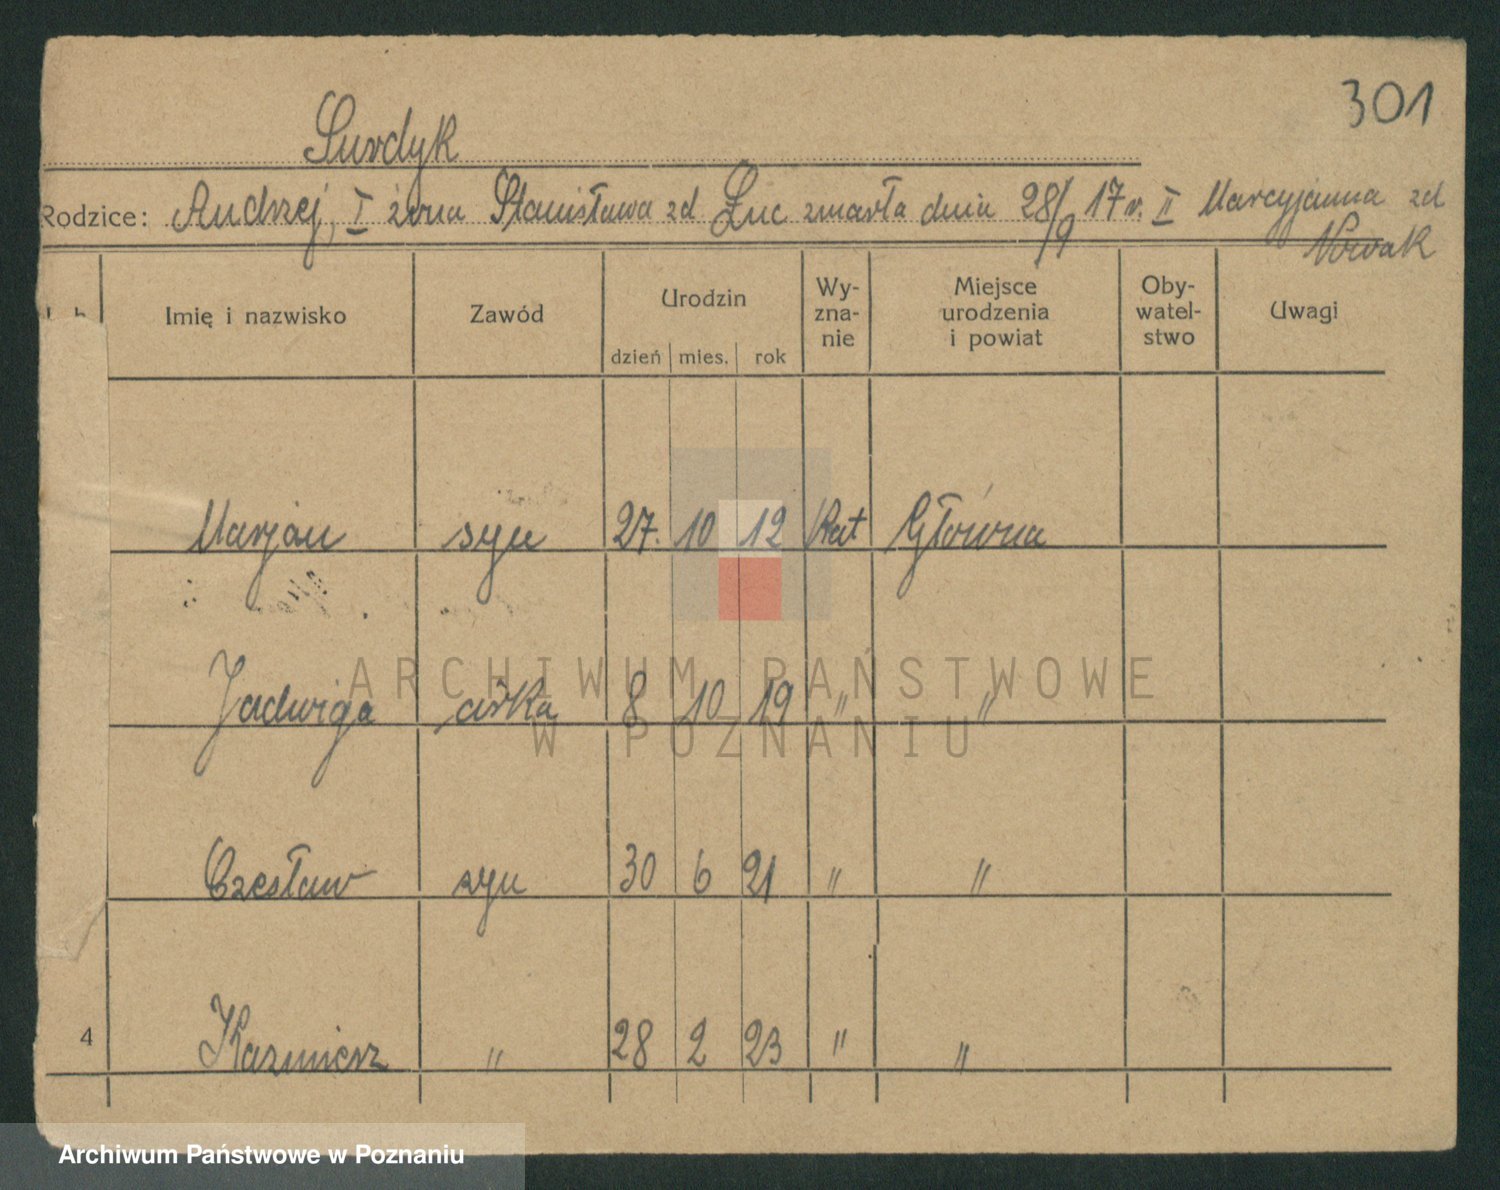 301
Surdyk
Rodzice: Andrzej, I żona Stanisława zd Luc zmarła dnia 28/9 17 r. II Marcyjanna zd
Nowak
Imię i nazwisko Zawód Urodzin Wy-zna-nie Miejsce urodzenia i powiat Oby-watel-stwo Uwagi
dzień mies. rok
Marjan syn 27. 10 12 Kat Główna
Jadwiga córka 8 10 19 " "
Czesław syn 30 6 21 " "
4 Kazmierz " 28 2 23 " "
ARCHIWUM PAŃSTWOWE
W POZNANIU
Archiwum Państwowe w Poznaniu